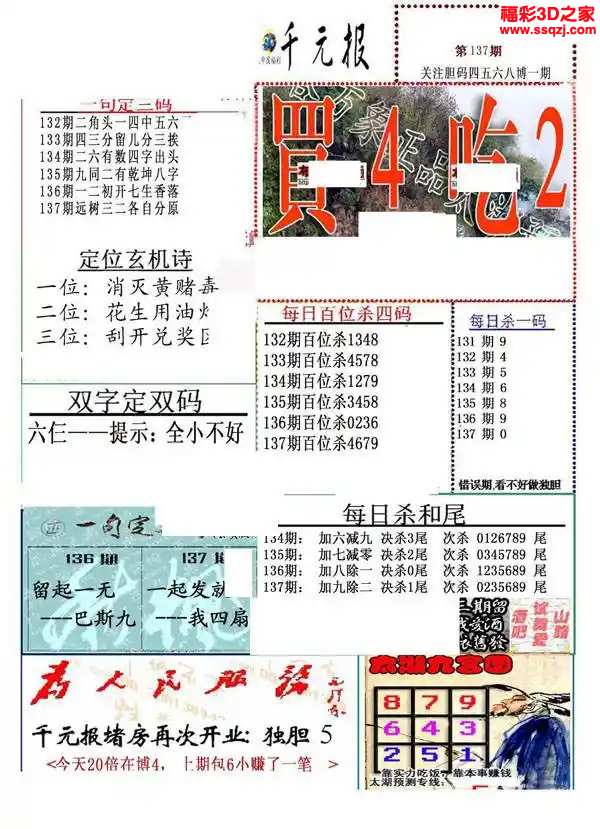 福彩3D之家
www.ssqzj.com
千元报
第137期
关注胆码四五六八博一期
一句定三码
132期二角头一四中五六
133期四三分留儿分三挨
134期二六有数四字出头
135期九同二有乾坤八字
136期一二初开七生香落
137期远树三二各自分原
買4吃2
定位玄机诗
一位：消灭黄赌毒
二位：花生用油炸
三位：刮开兑奖区
每日百位杀四码
132期百位杀1348
133期百位杀4578
134期百位杀1279
135期百位杀3458
136期百位杀0236
137期百位杀4679
每日杀一码
131期 9
132期 4
133期 5
134期 6
135期 8
136期 9
137期 0
错误期,看不好做独胆
双字定双码
六仨——提示：全小不好
一句定
136期
留起一无
---巴斯九
137
一起发就
---我四扇
每日杀和尾
134期： 加六减九 决杀3尾 次杀 0126789 尾
135期： 加七减零 决杀2尾 次杀 0345789 尾
136期： 加八除一 决杀0尾 次杀 1235689 尾
137期： 加九除二 决杀1尾 次杀 0235689 尾
为人民服务
千元报堵房再次开业：独胆 5
<今天20倍在博4，上期包6小赚了一笔 >
太湖九宫图
8 7 9
6 4 3
2 5 1
靠实力吃饭，靠本事赚钱
太湖预测专线：